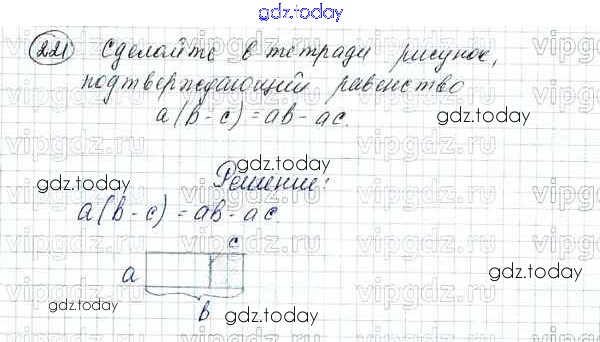 gdz.today
221 Сделайте в тетради рисунок,
подтверждающий равенство
a(b-c)=ab-ac.
gdz.today
gdz.today
gdz.today
Решение:
a(b-c)=ab-ac.
c
a
gdz.today
gdz.today
b
gdz.today
vipgdz.ru